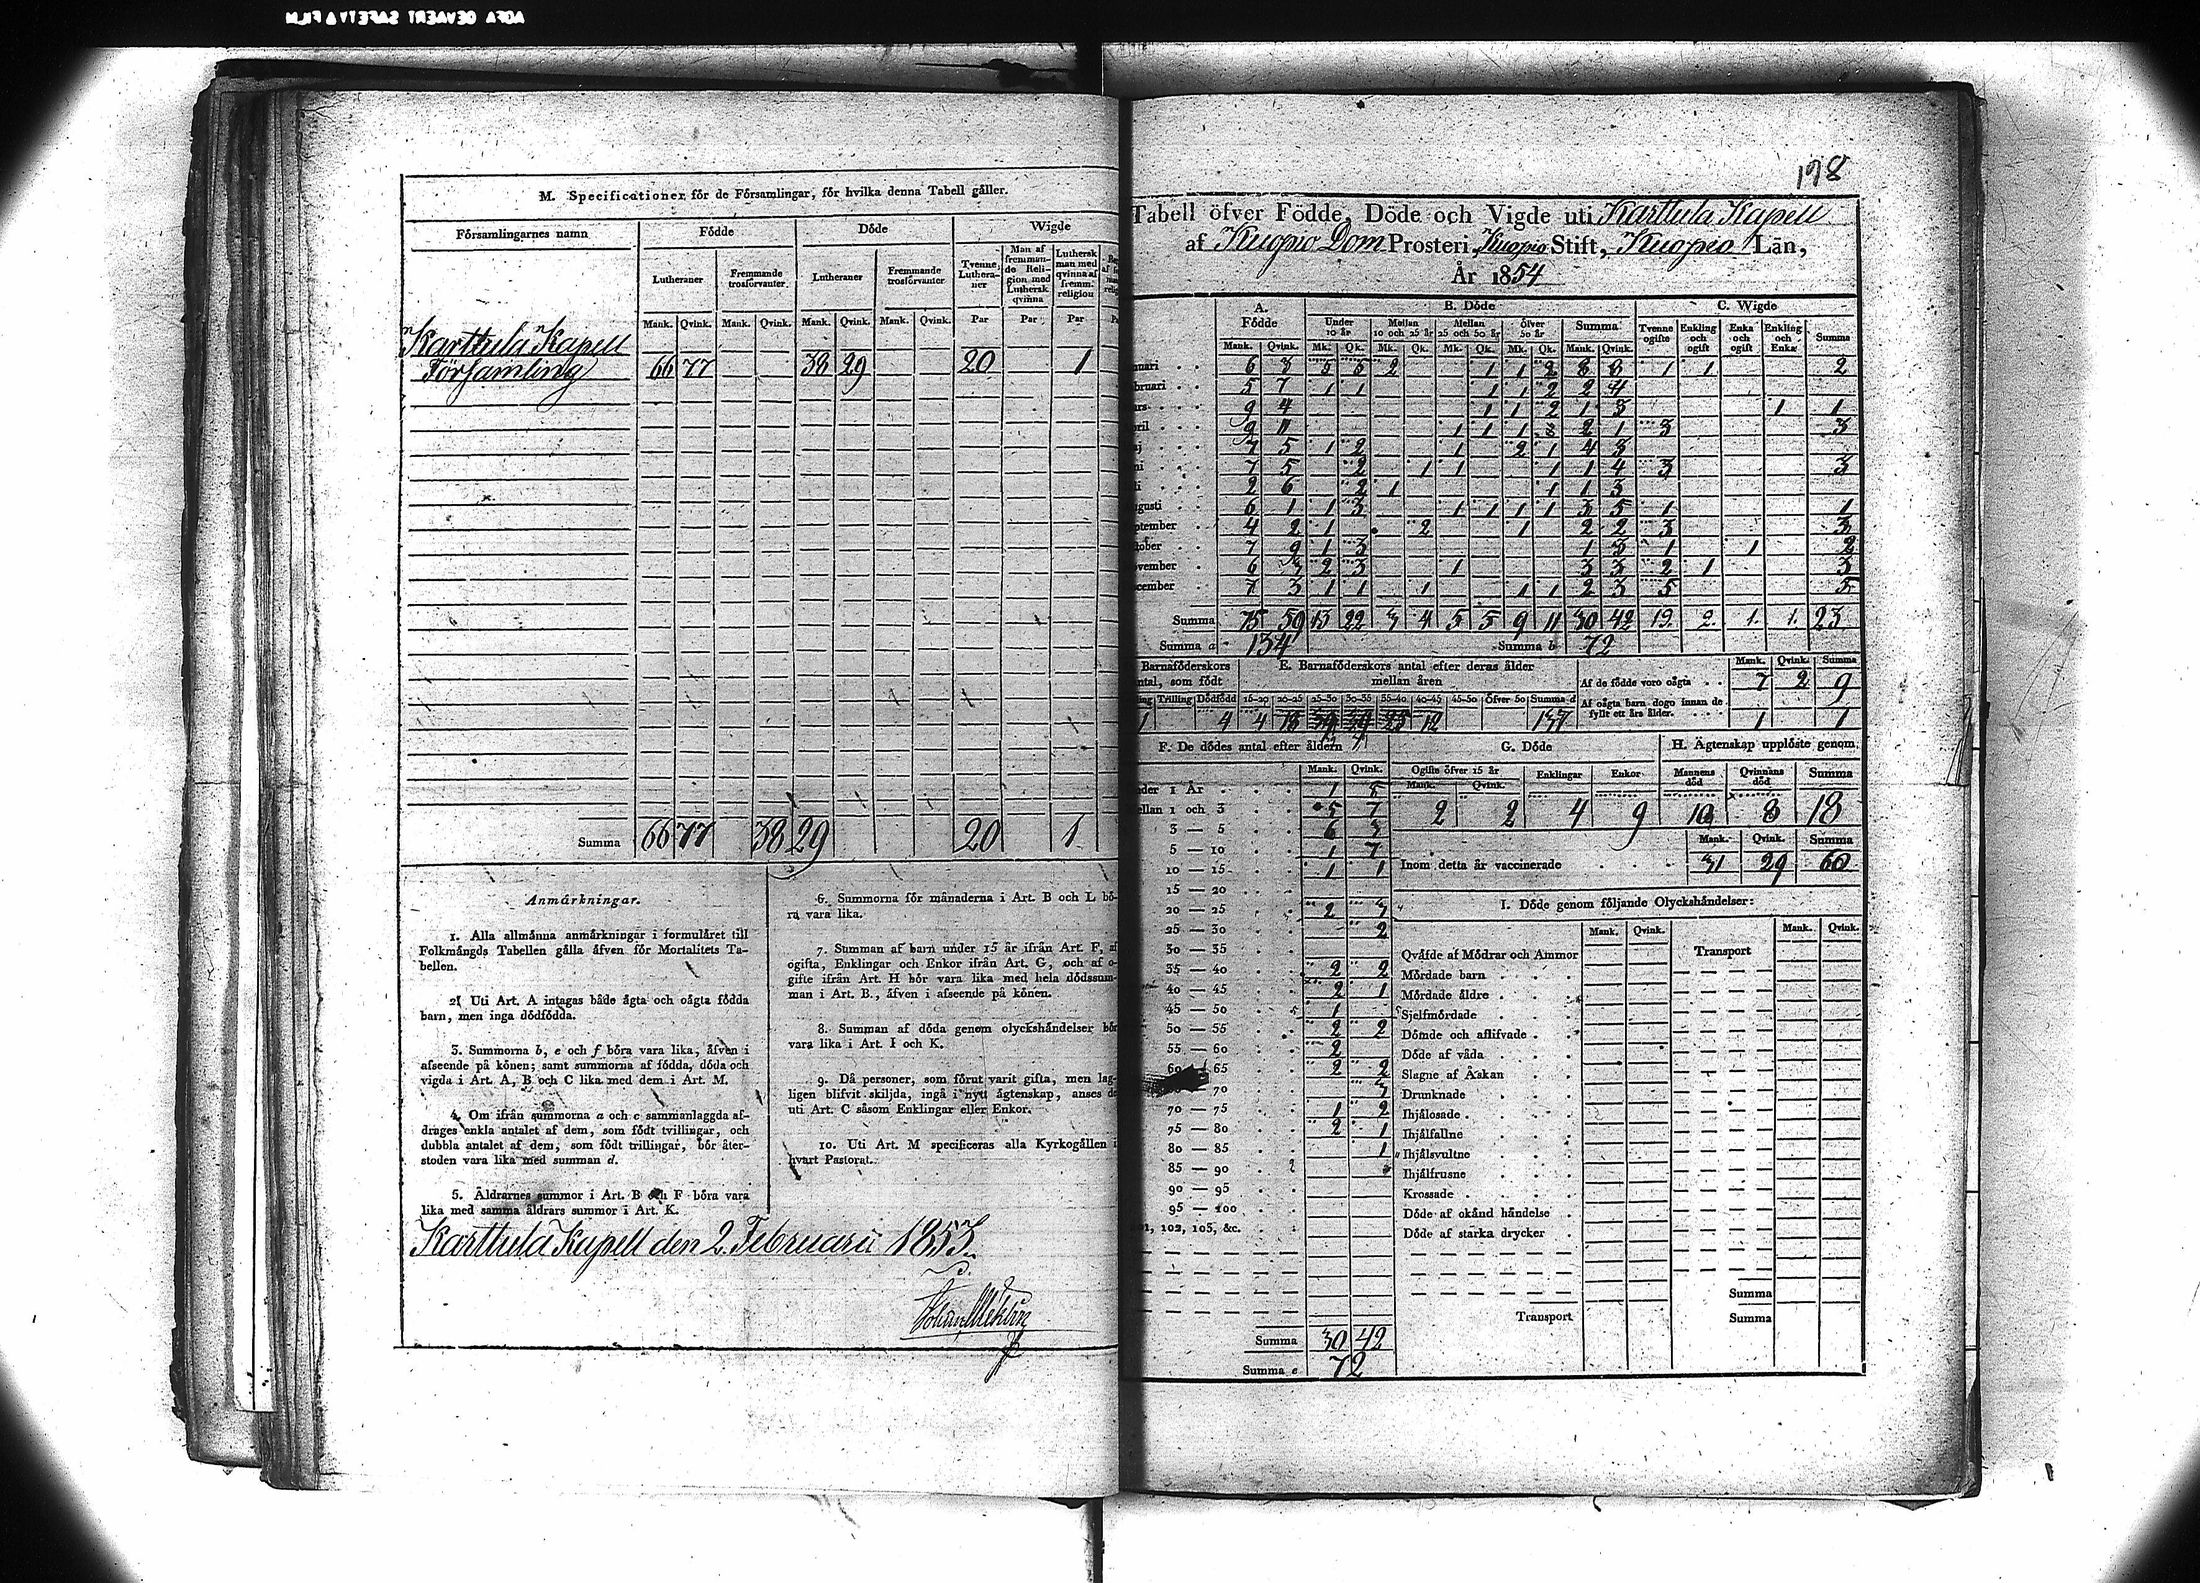 AGFA GEVAERT SAFETY FILM
M. Specificationer för de Församlingar, för hvilka denna Tabell gäller.
Församlingarnes namn Födde Döde Wigde
Lutheraner Fremmande trosförvanter. Lutheraner Fremmande trosförvanter Tvenne Lutheraner Man af fremmande Religion med Luthersk qvinna Luthersk man med qvinna af fremm. religion
Mank. Qvink. Mank. Qvink. Mank. Qvink. Mank. Qvink. Par Par Par
Karttula Kapell
Församling 66 77 38 29 20 1
Summa 66 77 38 29 20 1
Anmärkningar.
1. Alla allmänna anmärkningar i formuläret till
Folkmängds Tabellen gälla äfven för Mortalitets Ta-
bellen.
2. Uti Art. A intagas både ägta och oägta födda
barn, men inga dödfödda.
3. Summorna b, e och f böra vara lika, äfven i
afseende på könen; samt summorna af födda, döda och
vigda i Art. A, B och C lika med dem i Art. M.
4. Om ifrån summorna a och c sammanlaggda af-
drages enkla antalet af dem, som födt tvillingar, och
dubbla antalet af dem, som födt trillingar, bör åter-
stoden vara lika med summan d.
5. Äldrarnes summor i Art. B och F böra vara
lika med samma äldrars summor i Art. K.
6. Summorna för månaderna i Art. B och L bö-
ra vara lika.
7. Summan af barn under 15 år ifrån Art. F, af
ogifta, Enklingar och Enkor ifrån Art. G, och af o-
gifte ifrån Art. H bör vara lika med hela dödssum-
man i Art. B., äfven i afseende på könen.
8. Summan af döda genom olyckshändelser bör
vara lika i Art. I och K.
9. Då personer, som förut varit gifta, men lag-
ligen blifvit skiljda, ingå i nytt ägtenskap, anses de
uti Art. C såsom Enklingar eller Enkor.
10. Uti Art. M specificeras alla Kyrkogällen i
hvart Pastorat.
Karttula Kapell den 2 Februarii 1853.
198
Tabell öfver Födde, Döde och Vigde uti Karttula Kapell
af Kuopio Dom Prosteri, Kuopio Stift, Kuopio Län,
År 1854
A. Födde B. Döde C. Wigde
Under 10 år Mellan 10 och 25 år Mellan 25 och 50 år Öfver 50 år Summa Tvenne ogifte Enkling och ogift Enka och ogift Enkling och Enka Summa
Mank. Qvink. Mk. Qk. Mk. Qk. Mk. Qk. Mk. Qk. Mank. Qvink.
nuari 6 3 5 5 2 1 1 2 8 8 1 1 2
bruari 5 7 1 1 1 1 2 2 4
ars 9 4 1 1 2 1 3 1 1
pril 9 11 1 1 1 3 2 1 3 3
aj 7 5 1 2 1 2 1 4 3
ni 7 5 2 1 1 1 1 4 3 3
li 2 6 2 1 1 1 3
gusti 6 1 1 3 1 1 1 1 3 5 1 1
ptember 4 2 1 2 1 2 2 3 3
tober 7 9 1 3 1 3 1 1 2
ovember 6 3 2 3 1 3 3 2 1 3
cember 7 3 1 1 1 1 1 2 3 5 5
Summa 75 59 13 22 3 4 5 5 9 11 30 42 19. 2. 1. 1. 23
Summa a 134 Summa b 72
Barnaföderskors antal, som födt E. Barnaföderskors antal efter deras ålder mellan åren Mank. Qvink. Summa
Trilling Dödfödd 15-20 20-25 25-30 30-35 35-40 40-45 45-50 Öfver 50 Summa d
Af de födde voro oägta 7 2 9
Af oägta barn dogo innan de fyllt ett års ålder. 1 1
1 4 4 18 39 39 25 12 137
F. De dödes antal efter åldern G. Döde H. Ägtenskap upplöste genom
Mank. Qvink. Ogifte öfver 15 år Enklingar Enkor Mannens död Qvinnans död Summa
Mank. Qvink.
2 2 4 9 10 8 18
Mank. Qvink. Summa
Inom detta år vaccinerade 31 29 60
nder 1 År 1 5
ellan 1 och 3 5 7
3 — 5 6 3
5 — 10 1 7
10 — 15 1 1
15 — 20
20 — 25 2 3
25 — 30 2
30 — 35
35 — 40 2 2
40 — 45 2 1
45 — 50 1
50 — 55 2 2
55 — 60 2
60 65 2 2
70 3
70 — 75 1 2
75 — 80 2 1
80 — 85 1
85 — 90
90 — 95
95 — 100
101, 102, 103, &c.
Summa 30 42
Summa e 72
I. Döde genom följande Olyckshändelser:
Mank. Qvink. Mank. Qvink.
Qväfde af Mödrar och Ammor Transport
Mördade barn
Mördade äldre
Sjelfmördade
Dömde och aflifvade
Döde af våda
Slagne af Åskan
Drunknade
Ihjälosade
Ihjälfallne
Ihjälsvultne
Ihjälfrusne
Krossade
Döde af okänd händelse
Döde af starka drycker
Summa
Transport Summa